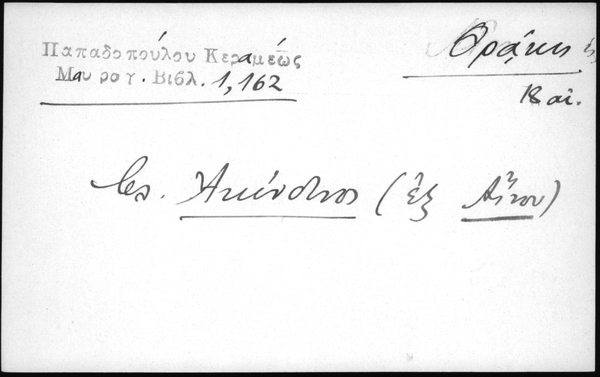 Παπαδοπούλου Κεραμέως
Μαυρογ. Βιβλ. 1,162
Θράκη
18 αἰ.
Ἀκίνδυνος (ἐξ Αἴνου)